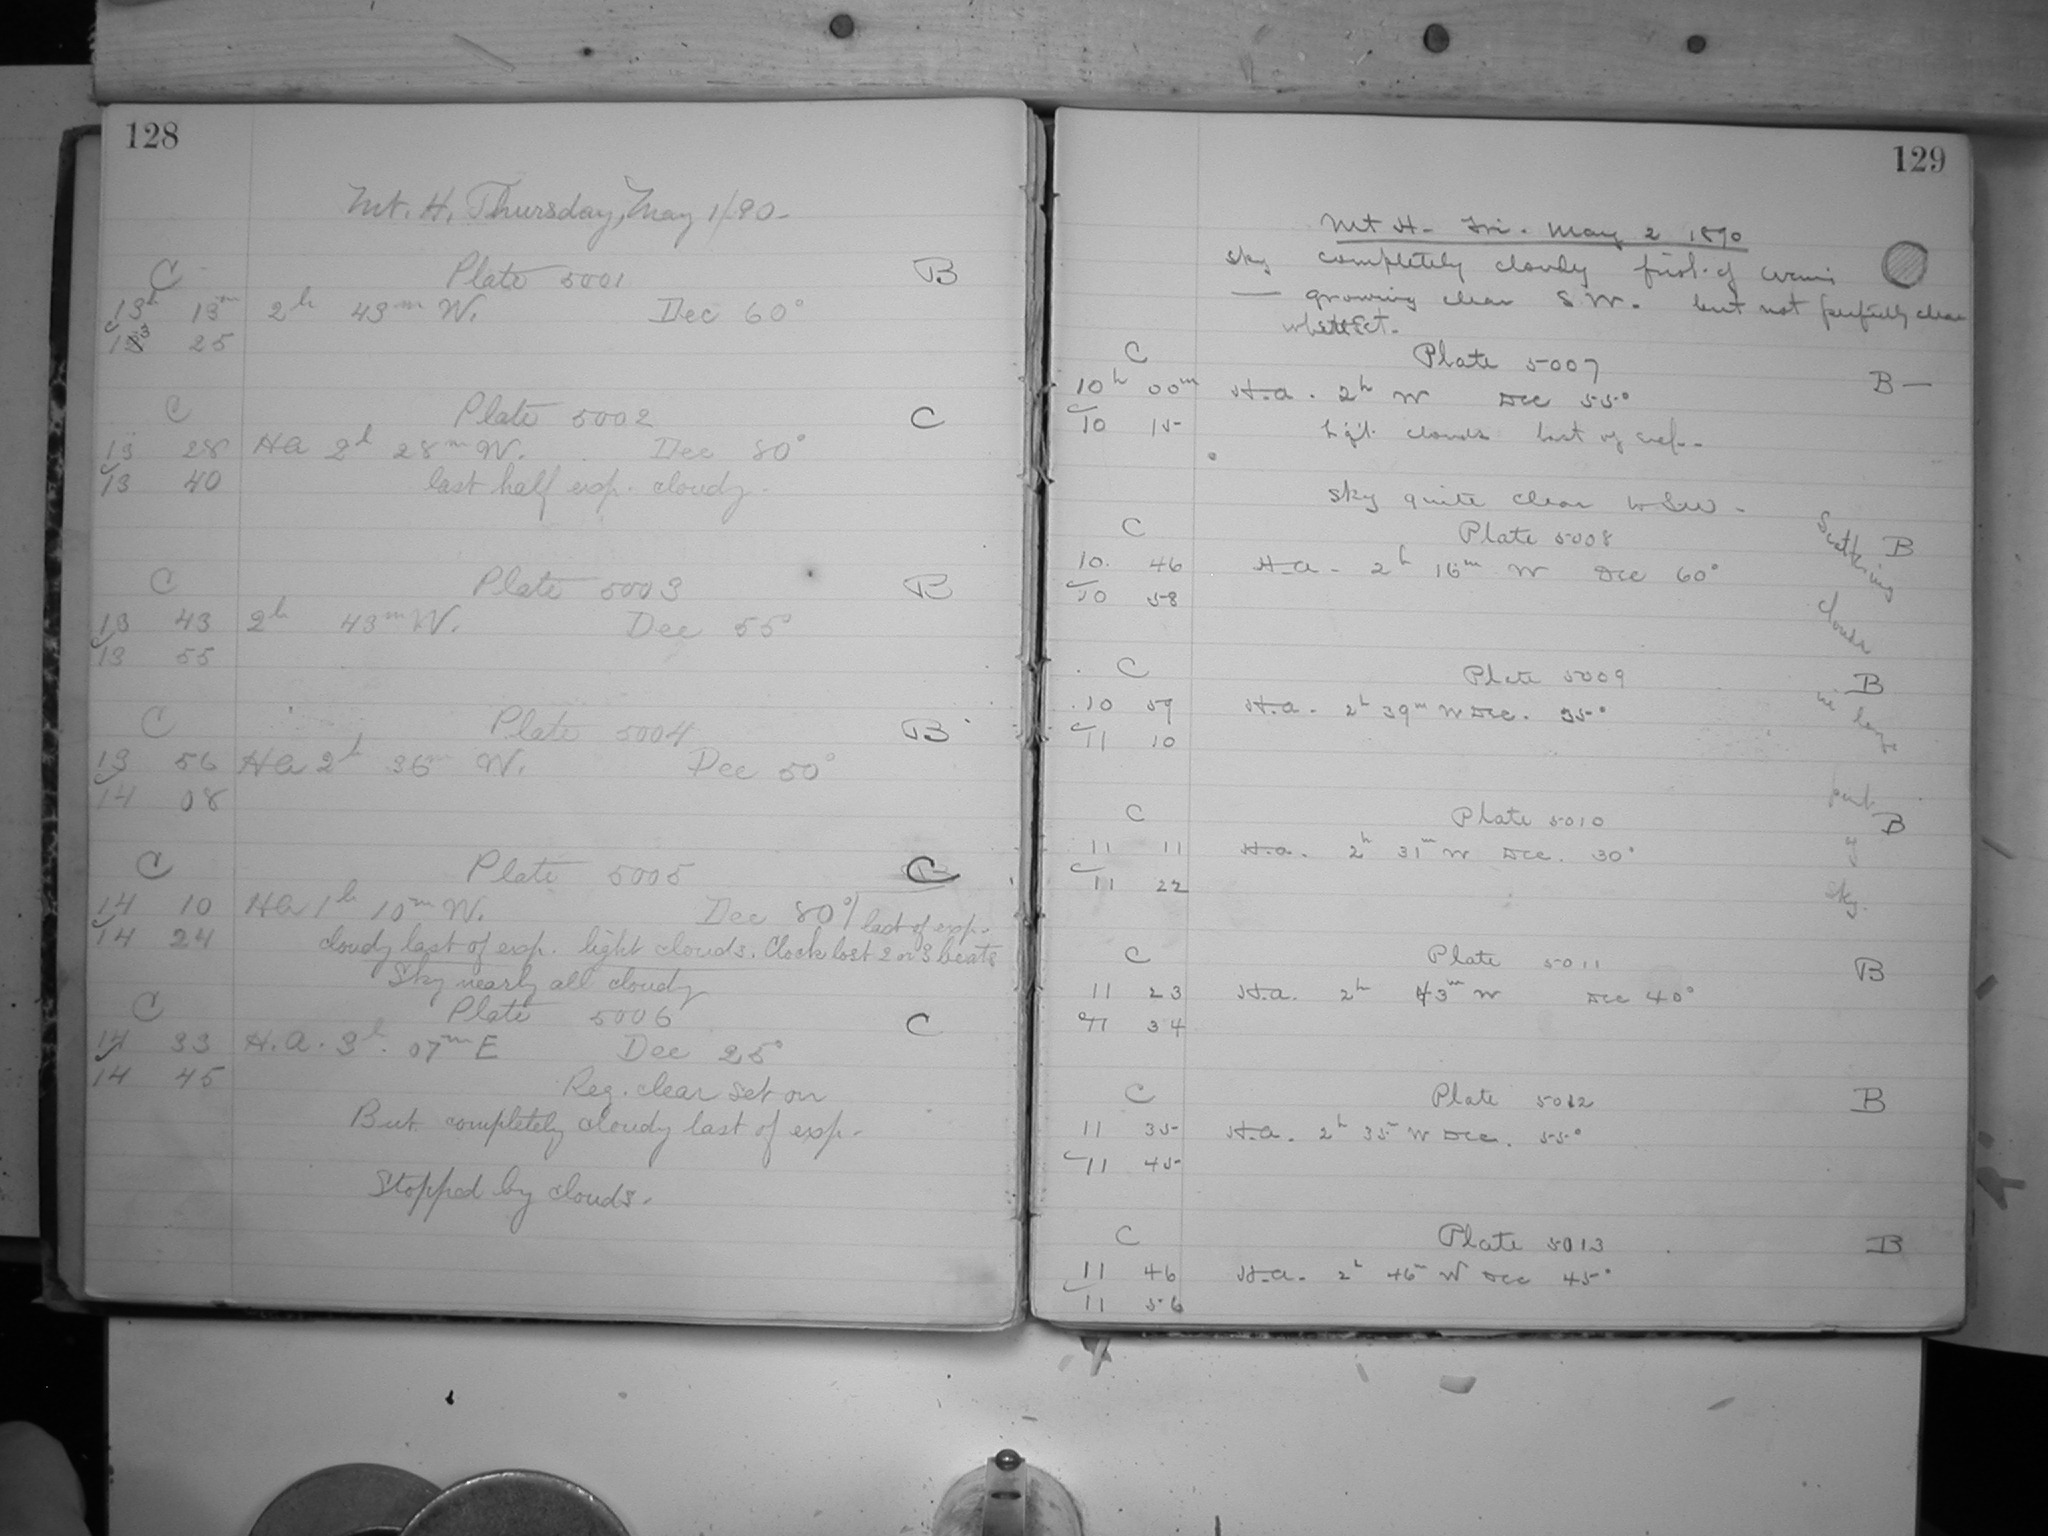 128
Mt. H. Thursday, May 1/90-
C Plate 5001 B
13h 13m 2h 43m W. Dec 60°
13 25
C Plate 5002 C
13 28 HA 2h 28m W. Dec 80°
13 40 last half exp. cloudy.
C Plate 5003 B
13 43 2h 43m W. Dec 55°
13 55
C Plate 5004 B
13 56 HA 2h 36m W. Dec 50°
14 08
C Plate 5005 C
14 10 HA 1h 10m W. Dec 80° last of exp.
14 24 cloudy last of exp. light clouds. Clock lost 2 or 3 beats
Sky nearly all cloudy
C Plate 5006 C
14 33 H.A. 3h. 07m E Dec 25°
14 45 Reg. clear set on
But completely cloudy last of exp.
Stopped by clouds.
129
Mt H- Fri. May 2 1890
Sky completely cloudy first of
— growing clear S W. but not perfectly clear
C Plate 5007 B—
10h 00m H.A. 2h W Dec 55°
10 15 light clouds last of exp.
Sky quite clear to SW.
C Plate 5008 B
10. 46 H.A. 2h 16m W Dec 60°
10 58
C Plate 5009 B
10 59 H.A. 2h 39m W Dec. 35°
11 10
C Plate 5010 B
11 11 H.A. 2h 31m W Dec. 30°
11 22
C Plate 5011 B
11 23 H.A. 2h 43m W Dec 40°
11 34
C Plate 5012 B
11 35 H.A. 2h 35m W Dec. 55°
11 45
C Plate 5013 B
11 46 H.A. 2h 46m W Dec 45°
11 56
Scattering
clouds
in large
part
of
sky.